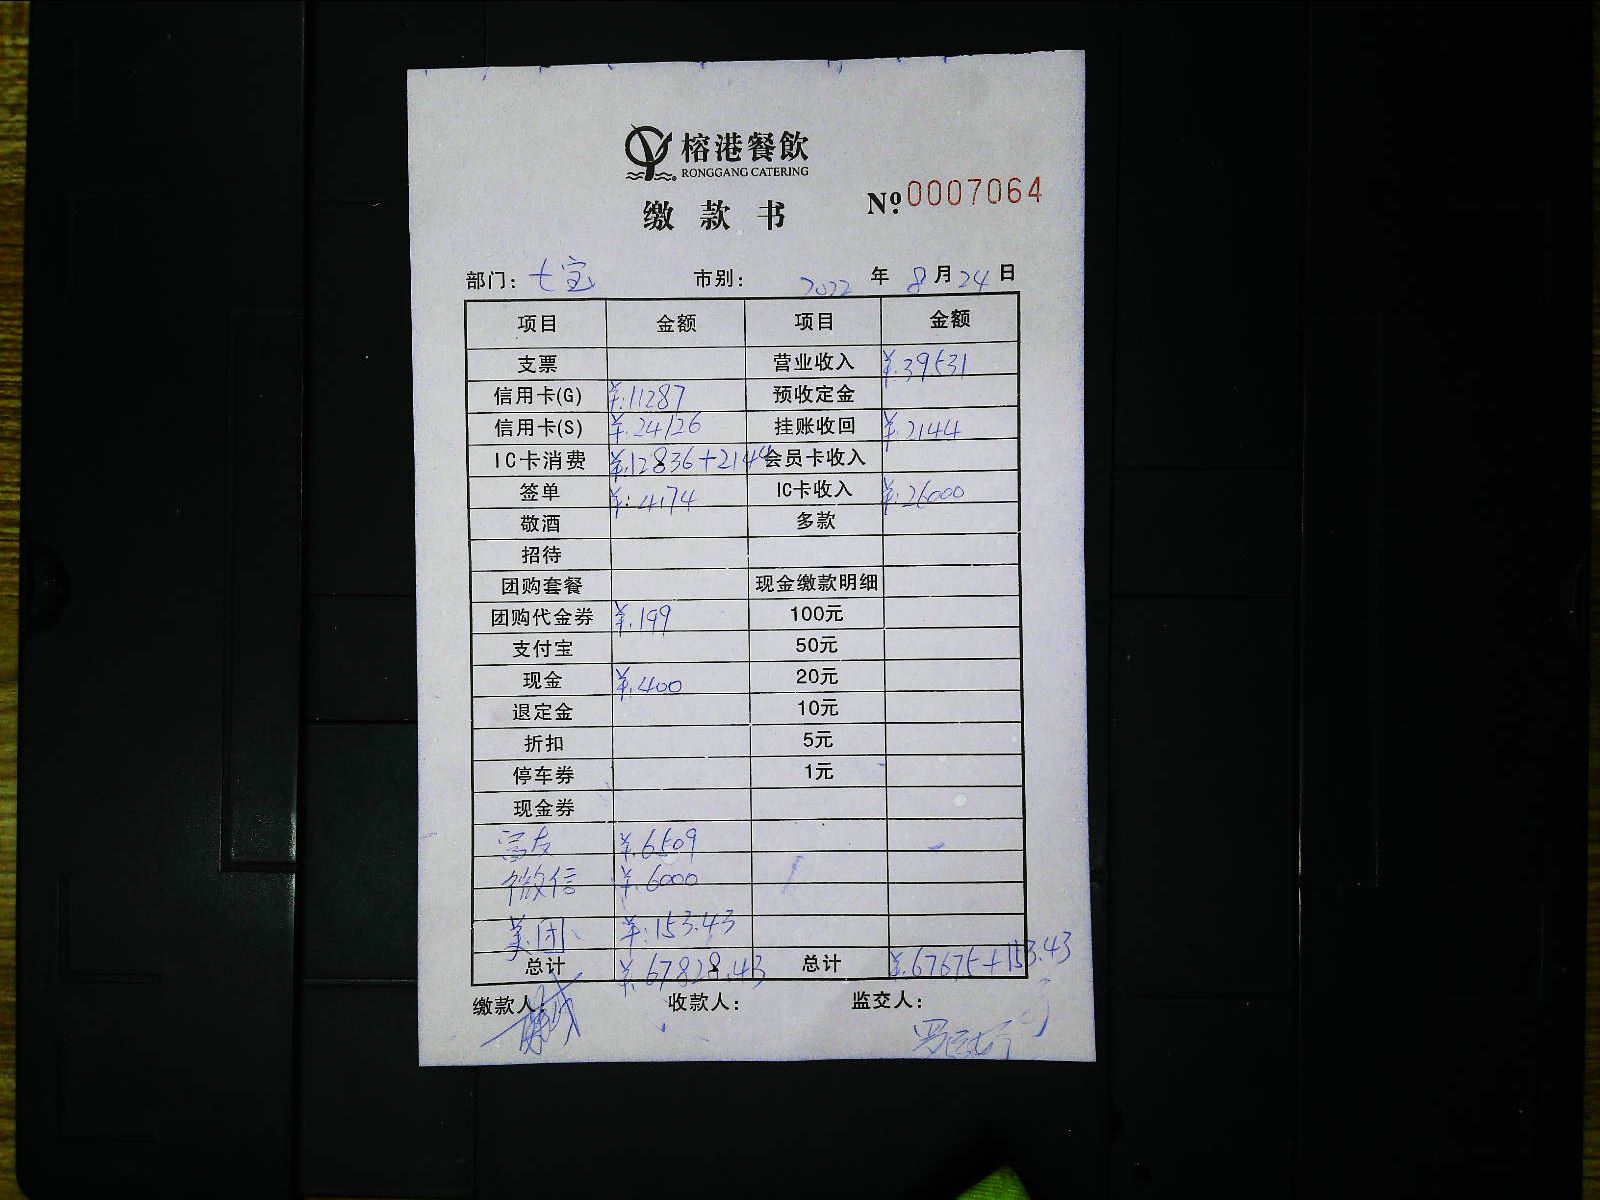 榕港餐飲
RONGGANG CATERING
缴款书
№ 0007064
部门：七宝 市别： 2022 年 8 月 24 日
项目 金额 项目 金额
支票 营业收入 ¥:39531
信用卡(G) ¥:11287 预收定金
信用卡(S) ¥:24126 挂账收回 ¥:2144
IC卡消费 ¥:12836+2144 会员卡收入
签单 ¥:4174 IC卡收入 ¥:26000
敬酒 多款
招待
团购套餐 现金缴款明细
团购代金券 ¥:199 100元
支付宝 50元
现金 ¥:400 20元
退定金 10元
折扣 5元
停车券 1元
现金券
富友 ¥:6509
微信 ¥:6000
美团 ¥:153.43
总计 ¥:67828.43 总计 ¥:67675+153.43
缴款人： 收款人： 监交人：